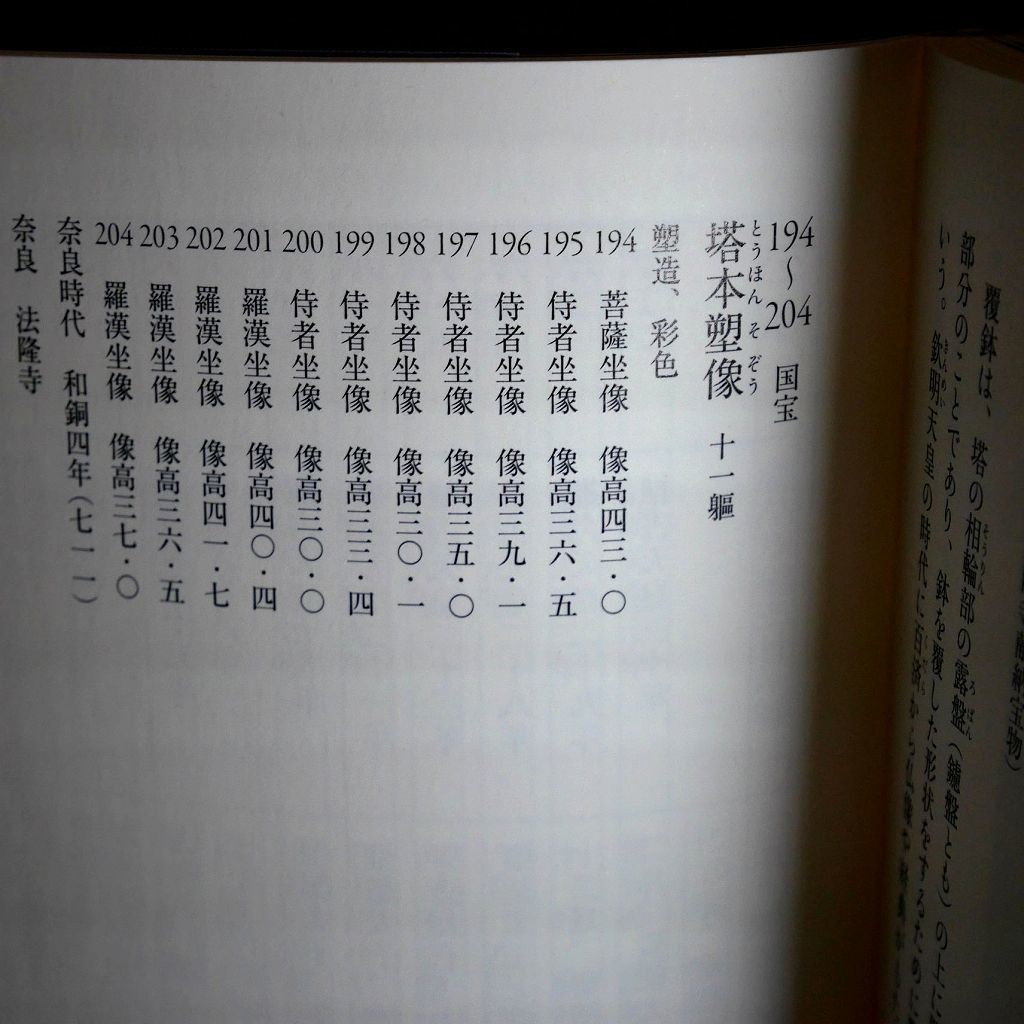 納宝物)
覆鉢は、塔の相輪部の露盤(鑪盤とも)の上に
部分のことであり、鉢を覆した形状をするために
いう。欽明天皇の時代に百済から仏像や
194〜204 国宝
塔本塑像 十一軀
とうほんそぞう
塑造、彩色
194 菩薩坐像 像高四三・〇
195 侍者坐像 像高三六・五
196 侍者坐像 像高三九・一
197 侍者坐像 像高三五・〇
198 侍者坐像 像高三〇・一
199 侍者坐像 像高三三・四
200 侍者坐像 像高三〇・〇
201 羅漢坐像 像高四〇・四
202 羅漢坐像 像高四一・七
203 羅漢坐像 像高三六・五
204 羅漢坐像 像高三七・〇
奈良時代 和銅四年(七一一)
奈良 法隆寺